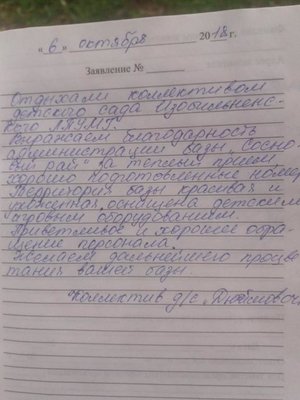 « 6 » октября 2018 г.
Заявление №
Отдыхали коллективом
детского сада Изобильненс-
кого ЛПУМГ.
Выражаем благодарность
администрации базы „Сосно-
вый рай" за теплый прием
хорошо подготовленные номера
Территория базы красивая и
ухоженная, оснащена детским
игровым оборудованием.
Приветливое и хорошее обра-
щение персонала!
Желаем дальнейшего процве-
тания вашей базы
Коллектив д/с